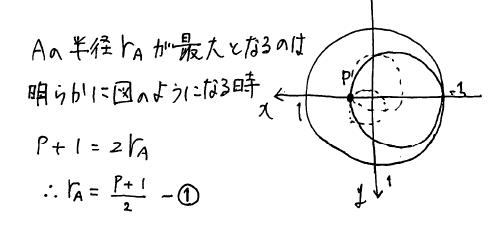 Aの半径rAが最大となるのは
明らかに図のようになる時
P+1=2rA
∴rA=P+1/2 −①
P
x
1
-1
1
y